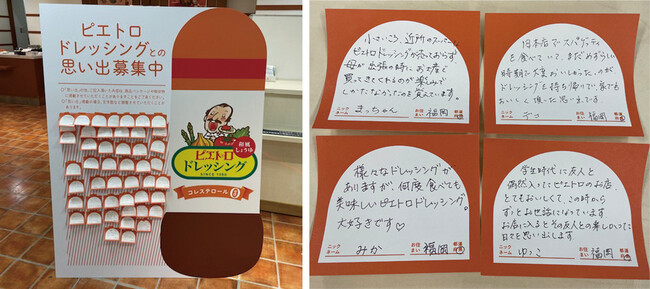 ピエトロ
ドレッシングとの
思い出募集中
和風
しょうゆ
ピエトロ
ドレッシング
SINCE 1980
コレステロール0
小さいころ、近所のスーパーに
ピエトロドレッシングが売っておらず
母が出張の時にお店で
買ってきてくれるのが楽しみで
しかたなかったのを覚えています。
ニックネーム
まっちゃん
お住まい
福岡
都道府県
本店でスパゲッティ
を食べていて、まだめずらしい
時期に大変おいしかったのが
ドレッシングを持ち帰りでき、家でも
おいしく頂いた思い出です
ニックネーム
お住まい
福岡
都道府県
様々なドレッシングが
ありますが、何度食べても
美味しいピエトロドレッシング。
大好きです♡
ニックネーム
みか
お住まい
福岡
都道府県
学生時代に友人と
偶然入ったピエトロのお店。
とてもおいしくて、この時から
ずっとお世話になっています
お店に入るとその友人との楽しかった
日々を思い出します
ニックネーム
ゆうこ
お住まい
福岡
都道府県